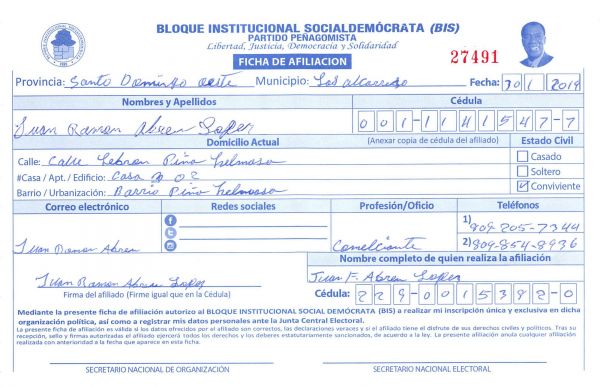 BLOQUE INSTITUCIONAL SOCIALDEMÓCRATA (BIS)
PARTIDO PEÑAGOMISTA
Libertad, Justicia, Democracia y Solidaridad
FICHA DE AFILIACION
27491
Provincia: Santo Domingo oeste Municipio: Los alcarrizo Fecha: 30 1 2019
Nombres y Apellidos Cédula
Juan Ramon Abreu Lopez 001-1141547-7
(Anexar copia de cédula del afiliado)
Domicilio Actual Estado Civil
Calle: Calle Lebron Pino Casado
#Casa / Apt. / Edificio: Casa 02 Soltero
Barrio / Urbanización: Barrio Pino Conviviente
Correo electrónico Redes sociales Profesión/Oficio Teléfonos
1) 809-205-7344
Juan Ramon Abreu Comelciante 2) 809-854-8936
Nombre completo de quien realiza la afiliación
Juan Ramon Abreu Lopez Juan F. Abreu Lopez
Firma del afiliado (Firme igual que en la Cédula) Cédula: 229-0015392-0
Mediante la presente ficha de afiliación autorizo al BLOQUE INSTITUCIONAL SOCIAL DEMÓCRATA (BIS) a realizar mi inscripción única y exclusiva en dicha
organización política, así como a registrar mis datos personales ante la Junta Central Electoral.
La presente ficha de afiliación es válida si los datos ofrecidos por el afiliado son correctos, las declaraciones veraces y si el afiliado tiene el disfrute de sus derechos civiles y políticos. Tras su
recepción, sello y firmas autorizadas el afiliado ejercerá todos los derechos y los deberes estatutariamente sancionados, de acuerdo a la ley. La presente afiliación anula cualquier afiliación
realizada con anterioridad a la fecha que aparece en esta ficha.
SECRETARIO NACIONAL DE ORGANIZACIÓN SECRETARIO NACIONAL ELECTORAL